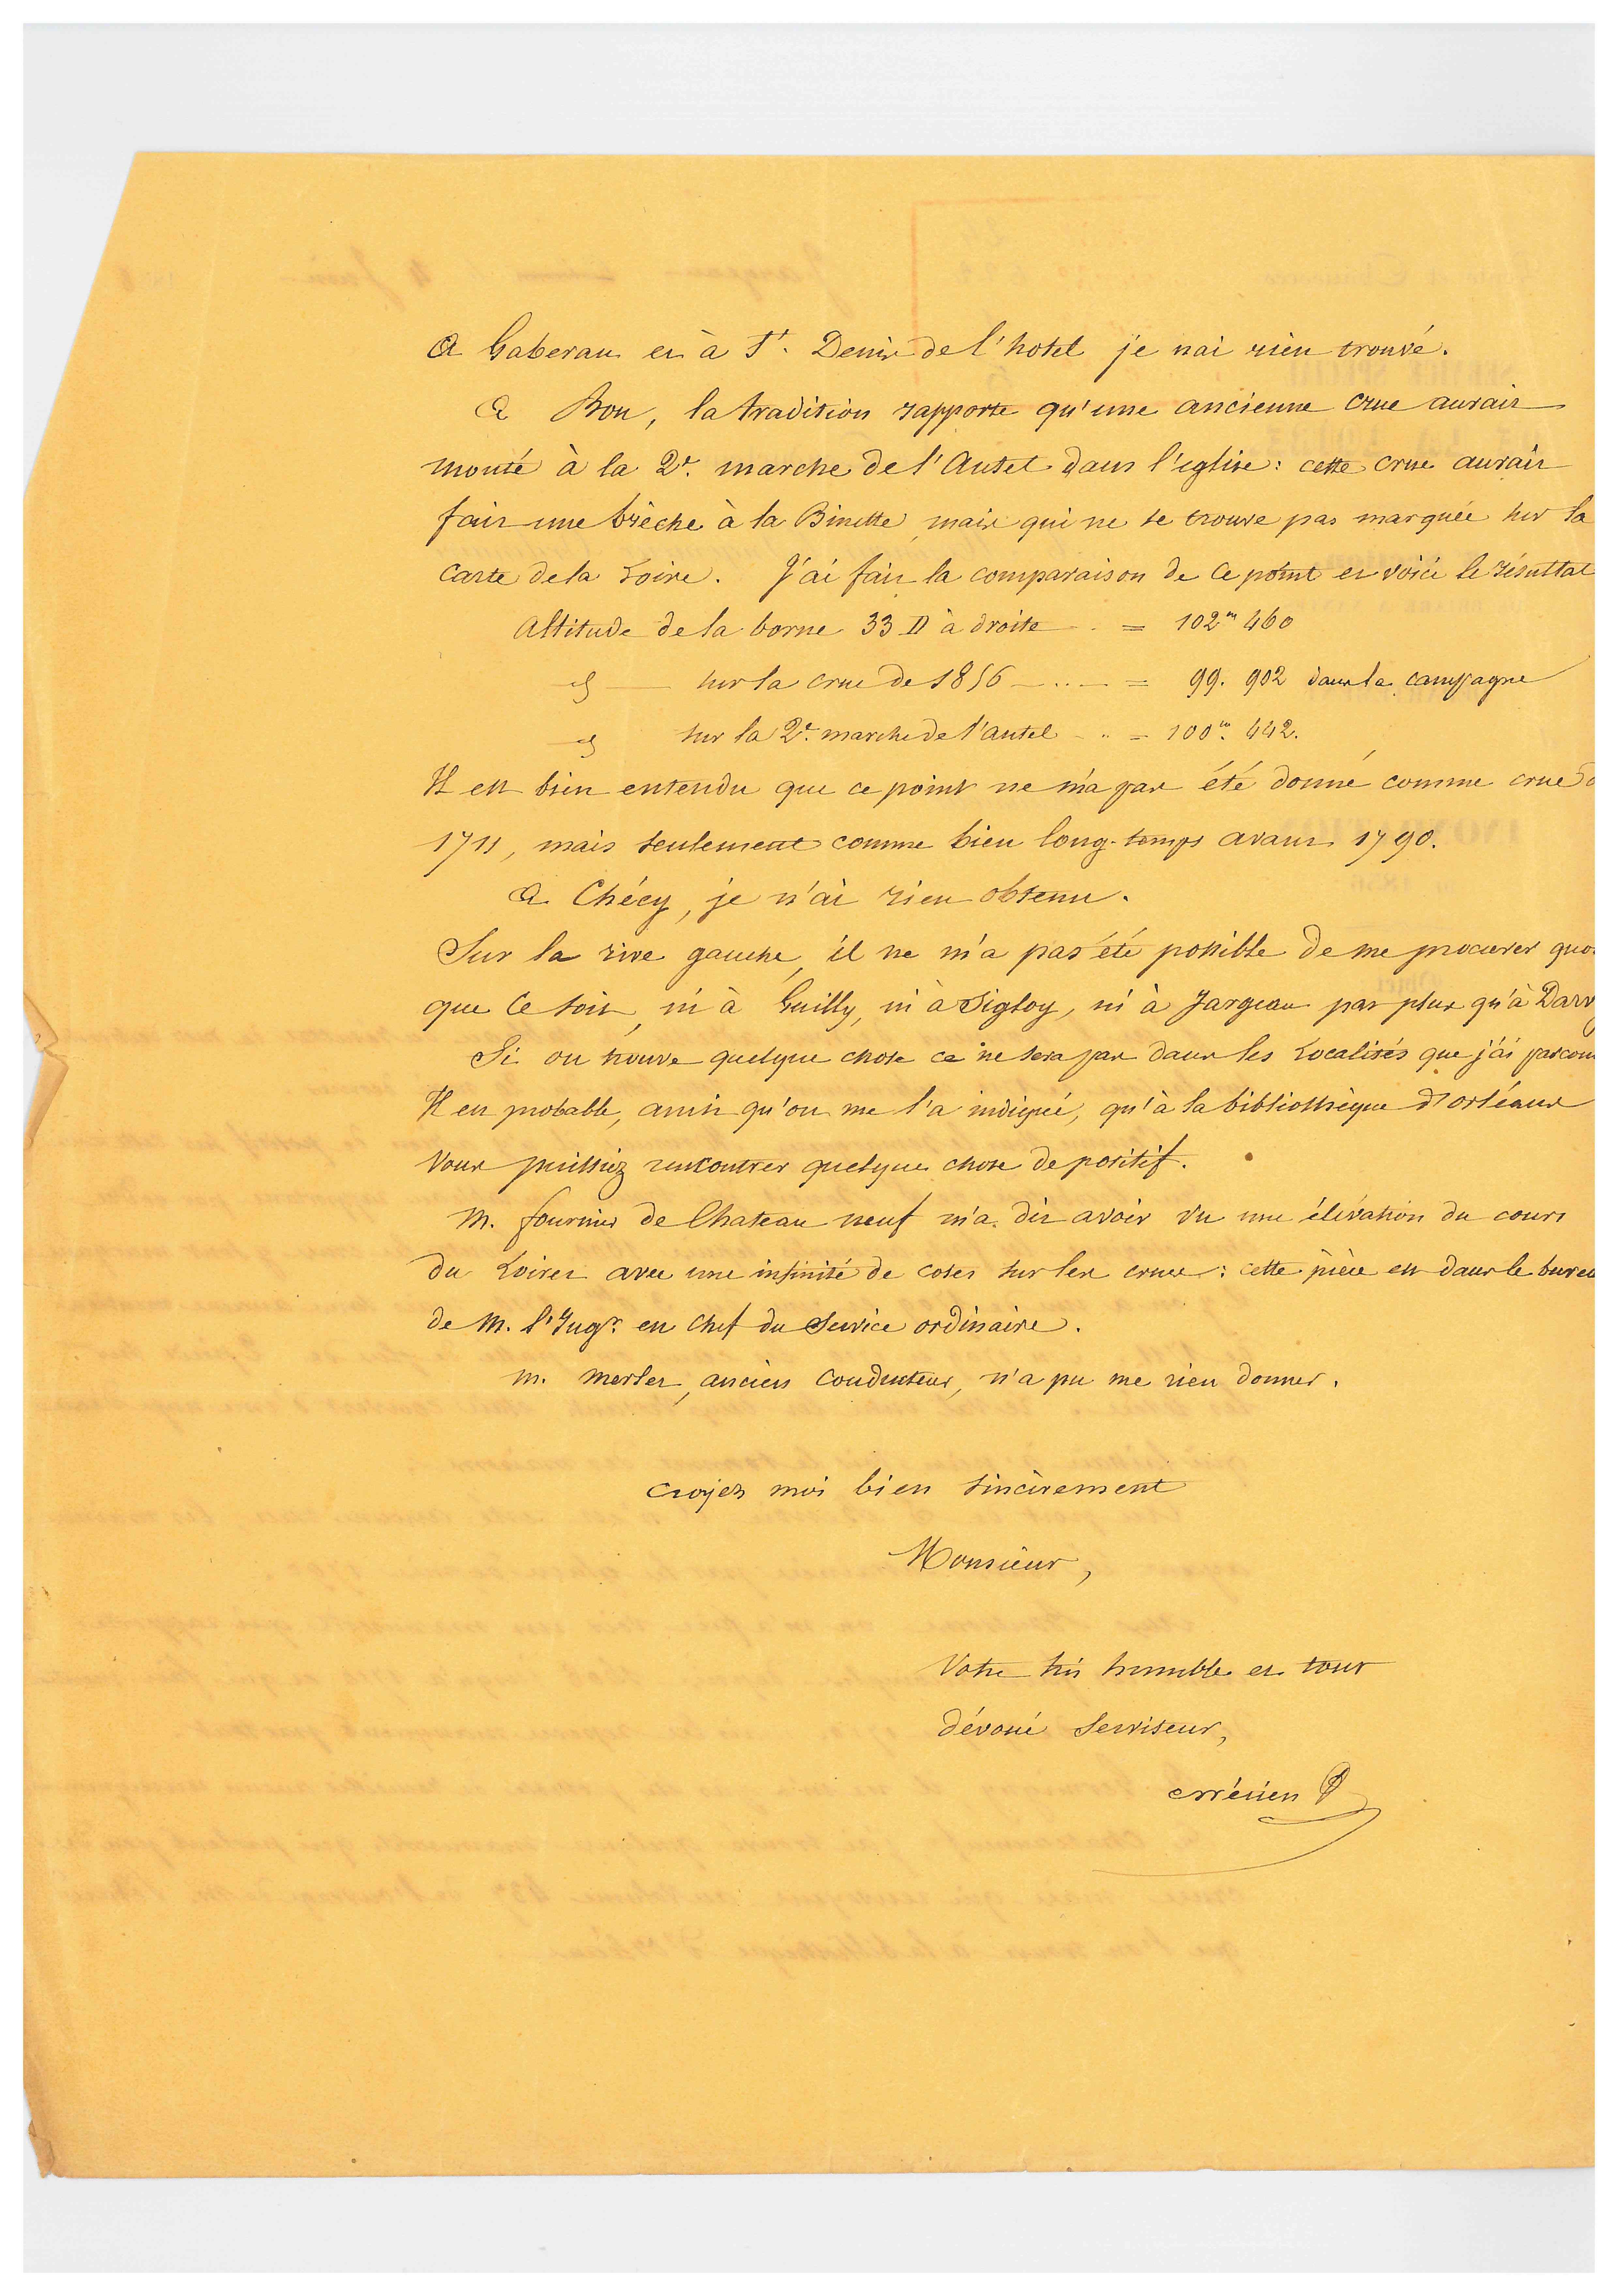 A Gaberau et à St. Denis de l'hotel je nai rien trouvé.
A Bou, la tradition rapporte qu'une ancienne crue aurait
monté à la 2e. marche de l'Autel dans l'eglise: cette crue aurait
fait une brèche à la Binette, mais qui ne se trouve pas marquée sur la
carte de la Loire. J'ai fait la comparaison de ce point et voici le résultat
Altitude de la borne 33 D à droite = 102m 460
d sur la crue de 1856 = 99. 902 dans la campagne
d sur la 2e. marche de l'autel = 100m. 442.
Il est bien entendu que ce point ne m'a pas été donné comme crue
1711, mais seulement comme bien long-temps avant 1790.
A Chécy, je n'ai rien obtenu.
Sur la rive gauche, il ne m'a pas été possible de me procurer quoi
que ce soit, ni à Guilly, ni à Sigloy, ni à Jargeau pas plus qu'à Darv
Si on trouve quelque chose ce ne sera pas dans les Localités que j'ai parcou
Il est probable, ainsi qu'on me l'a indiqué, qu'à la bibliothèque d'orléans
vous puissiez rencontrer quelque chose de positif.
M. fournier de Chateau neuf m'a dit avoir vu une élévation du cours
du Loiret avec une infinité de cotes sur les crues: cette pièce est dans le burea
de M. l'Ingr. en chef du Service ordinaire.
M. Merlet, ancien Conducteur, n'a pu me rien donner.
croyez moi bien sincèrement
Monsieur,
Votre très humble et tout
dévoué Serviteur,